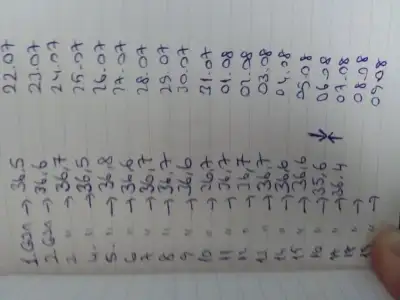 1. ден → 36.5 22.07
2. ден → 36,6 23.07
3. " → 36,7 24.07
4. " → 36,5 25.07
5. " → 36,8 26.07
6 " → 36,6 27.07
7 " → 36,7 28.07
8 " → 36,7 29.07
9 " → 36,6 30.07
10 " → 36,7 31.07
11 " → 36,7 01.08
12 " → 36,7 02.08
13 " → 36,7 03.08
14 " → 36,6 04.08
15 " → 36,6 05.08
16 " → 35,6 06.08
17 " → 36.4 07.08
18 " → 08.08
19 " → 09.08